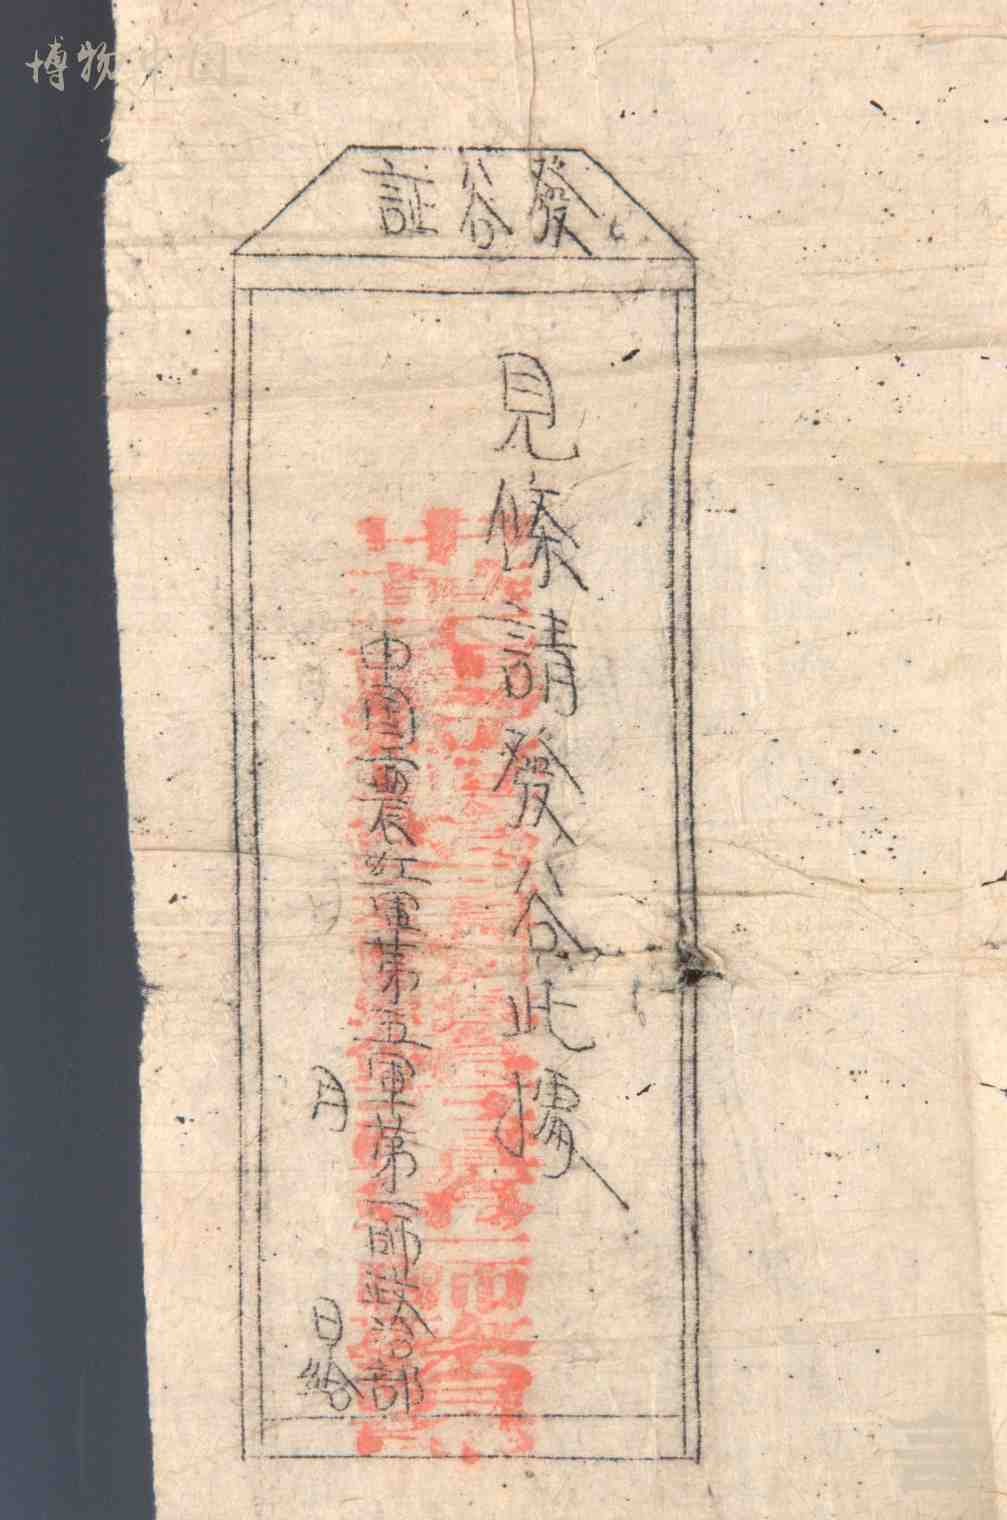 博物中国
發谷証
見條請發谷此據
中國工農紅軍第五軍第一師政治部
月
日給